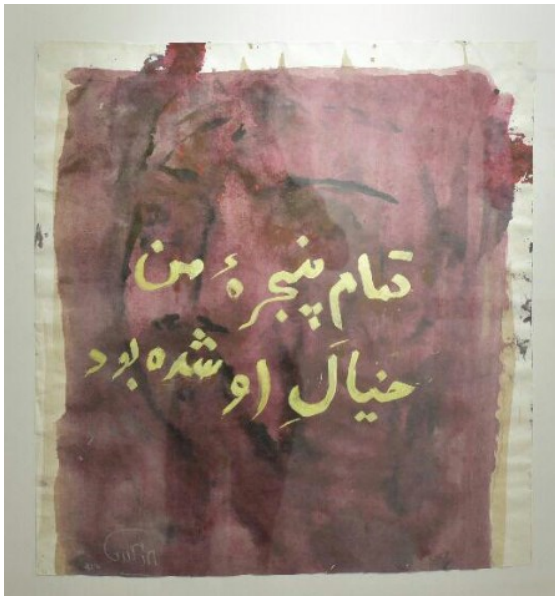 تمام پنجرهٔ من
خیالَِ او شده بود